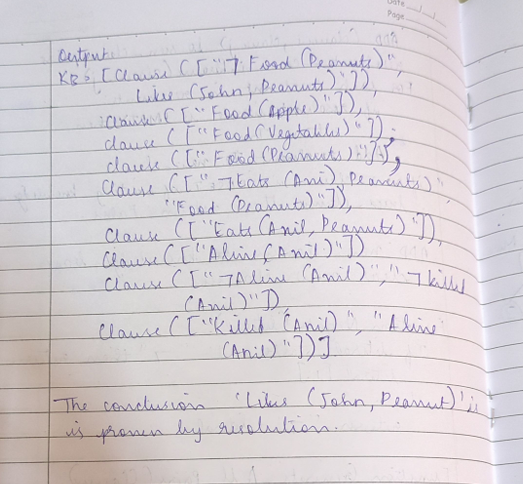 Date
Page
Output
KB: [Clause (["¬Food (Peanuts)",
Likes (John, Peanuts)"]),
Clause (["Food (Apple)"]),
clause (["Food (Vegetables)"]),
clause (["Food (Peanuts)"]),
Clause (["¬Eats (Anil Peanuts)"
"Food (Peanuts)"]),
Clause (["Eats (Anil, Peanuts)"]),
Clause (["Alive (Anil)"])
Clause (["¬Alive (Anil)", "¬killed
(Anil)"]),
Clause (["Killed (Anil)", "Alive
(Anil)"])]
The conclusion 'Likes (John, Peanut)' is
is proven by resolution.